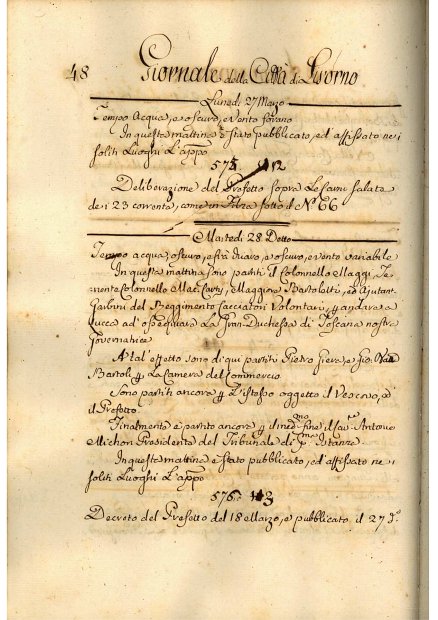 48 Giornale della Città di Livorno
Lunedi 27 Marzo
Tempo Acqua, e oscuro, e vento forano
In questa mattina è stato pubblicato, ed affissato nei
soliti Luoghi L'app.o
575
Deliberazione del Prefetto sopra Le Carni salata
de i 23 corrente, come in Filza sotto il N.o 66
Martedi 28 Detto
Tempo acqua, oscuro, e oscuro, e vento variabile
In questa mattina sono partiti il Colonnello Maggi, Te-
nente Colonnello Mac. Carty, Maggiore Bartolitti, ed Ajutant.
Garbini del Reggimento Cacciatori Volontari, p andare a
Lucca ad ossequiare La Gran-Duchessa di Toscana nostra
Governatrice
A tal'effetto sono di qui partiti Pietro e Gio.
Bartoli p La Camera del Commercio
Sono partiti ancora p L'istesso oggetto il Vescovo, e
il Prefetto.
Finalmente è partito ancora p il med.mo fine il Antonio
Michon Presidente del Tribunale di p.ma Istanza
In questa mattina è stato pubblicato, ed affissato ne i
soliti Luoghi L'app.o
576
Decreto del Prefetto del 18 Marzo, e pubblicato il 27 d.o